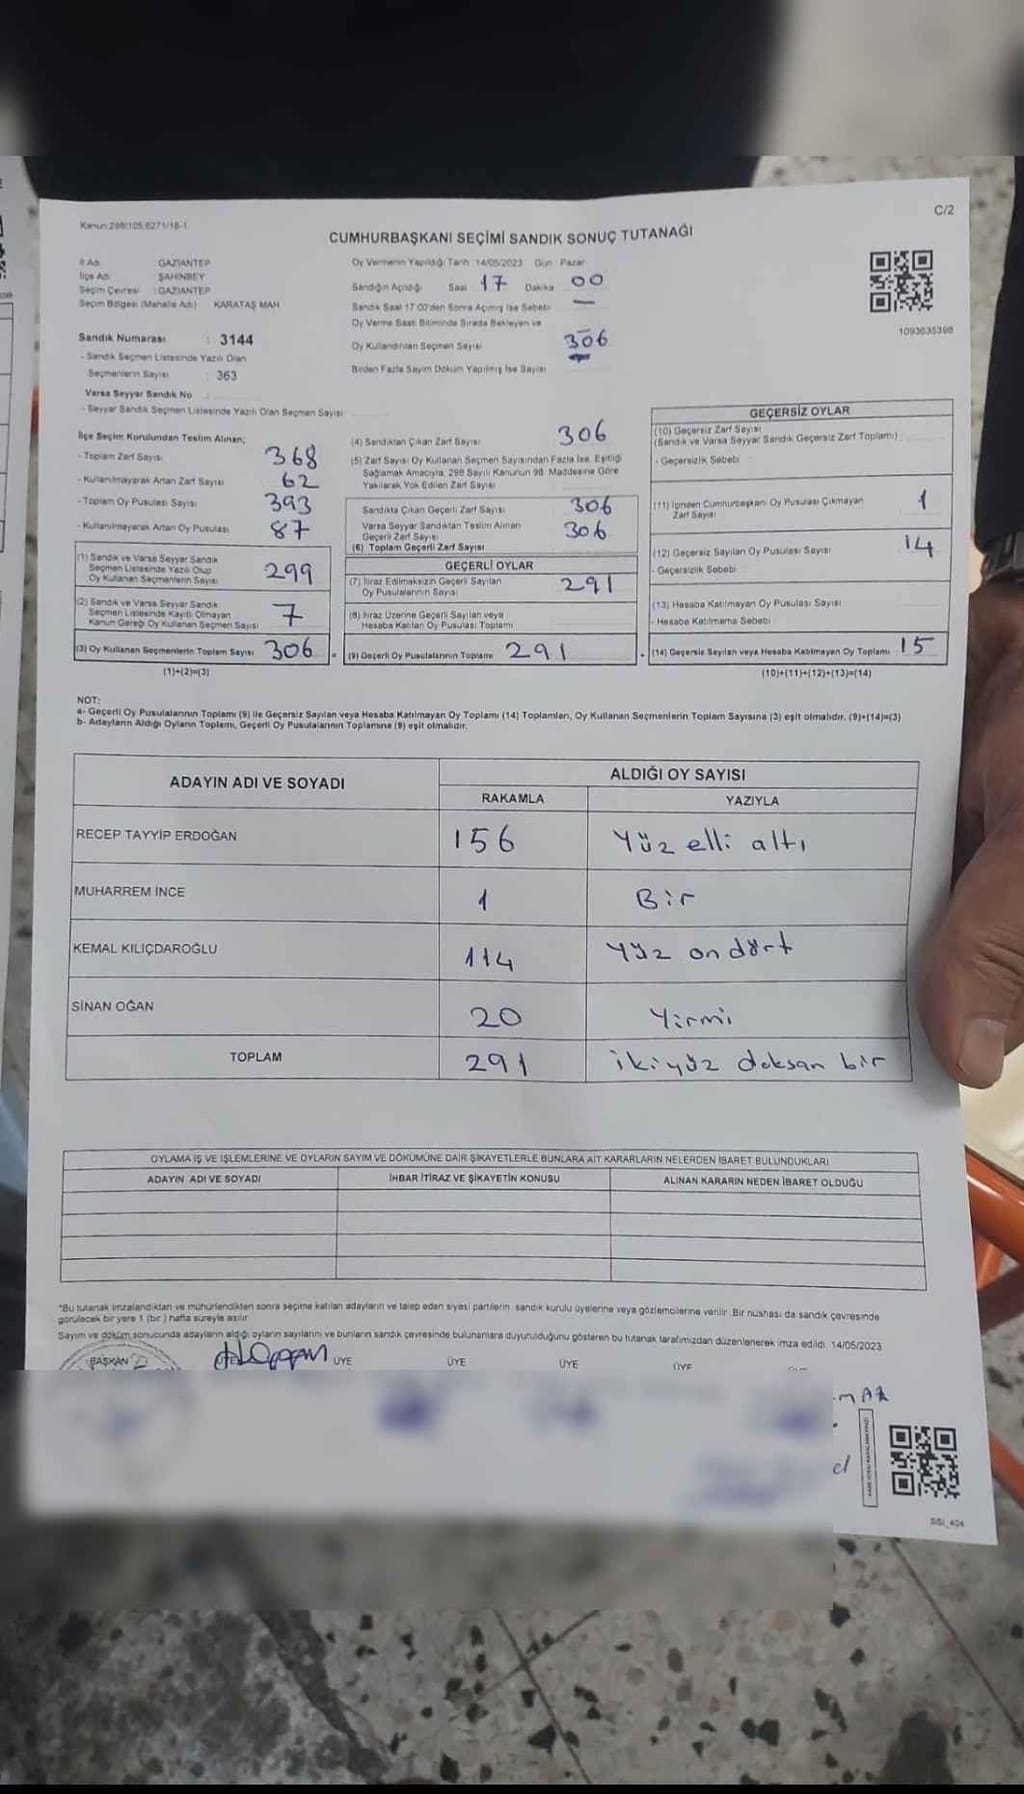 Kanun:298/105,6271/18-1
C/2
CUMHURBAŞKANI SEÇİMİ SANDIK SONUÇ TUTANAĞI
İl Adı GAZİANTEP
İlçe Adı ŞAHİNBEY
Seçim Çevresi : GAZİANTEP
Seçim Bölgesi (Mahalle Adı) KARATAŞ MAH
Sandık Numarası : 3144
- Sandık Seçmen Listesinde Yazılı Olan
Seçmenlerin Sayısı : 363
Varsa Seyyar Sandık No
- Seyyar Sandık Seçmen Listesinde Yazılı Olan Seçmen Sayısı
Oy Vermenin Yapıldığı Tarih 14/05/2023 Gün Pazar
Sandığın Açıldığı Saat 17 Dakika 00
Sandık Saat 17:00'den Sonra Açılmış İse Sebebi —
Oy Verme Saati Bitiminde Sırada Bekleyen ve
Oy Kullandırılan Seçmen Sayısı 306
Birden Fazla Sayım Döküm Yapılmış İse Sayısı
1093635398
İlçe Seçim Kurulundan Teslim Alınan;
- Toplam Zarf Sayısı 368
- Kullanılmayarak Artan Zarf Sayısı 62
- Toplam Oy Pusulası Sayısı 393
- Kullanılmayarak Artan Oy Pusulası 87
(1) Sandık ve Varsa Seyyar Sandık
Seçmen Listesinde Yazılı Olup
Oy Kullanan Seçmenlerin Sayısı 299
(2) Sandık ve Varsa Seyyar Sandık
Seçmen Listesinde Kayıtlı Olmayan
Kanun Gereği Oy Kullanan Seçmen Sayısı 7
(3) Oy Kullanan Seçmenlerin Toplam Sayısı 306
(1)+(2)=(3)
(4) Sandıktan Çıkan Zarf Sayısı 306
(5) Zarf Sayısı Oy Kullanan Seçmen Sayısından Fazla İse, Eşitliği
Sağlamak Amacıyla, 298 Sayılı Kanunun 98. Maddesine Göre
Yakılarak Yok Edilen Zarf Sayısı
Sandıkta Çıkan Geçerli Zarf Sayısı 306
Varsa Seyyar Sandıktan Teslim Alınan
Geçerli Zarf Sayısı 306
(6) Toplam Geçerli Zarf Sayısı
GEÇERLİ OYLAR
(7) İtiraz Edilmeksizin Geçerli Sayılan
Oy Pusulalarının Sayısı 291
(8) İtiraz Üzerine Geçerli Sayılan veya
Hesaba Katılan Oy Pusulası Toplamı
(9) Geçerli Oy Pusulalarının Toplamı 291
GEÇERSİZ OYLAR
(10) Geçersiz Zarf Sayısı
(Sandık ve Varsa Seyyar Sandık Geçersiz Zarf Toplamı)
- Geçersizlik Sebebi
(11) İçinden Cumhurbaşkanı Oy Pusulası Çıkmayan
Zarf Sayısı 1
(12) Geçersiz Sayılan Oy Pusulası Sayısı 14
- Geçersizlik Sebebi
(13) Hesaba Katılmayan Oy Pusulası Sayısı
- Hesaba Katılmama Sebebi
(14) Geçersiz Sayılan veya Hesaba Katılmayan Oy Toplamı 15
(10)+(11)+(12)+(13)=(14)
NOT:
a- Geçerli Oy Pusulalarının Toplamı (9) ile Geçersiz Sayılan veya Hesaba Katılmayan Oy Toplamı (14) Toplamları, Oy Kullanan Seçmenlerin Toplam Sayısına (3) eşit olmalıdır. (9)+(14)=(3)
b- Adayların Aldığı Oyların Toplamı, Geçerli Oy Pusulalarının Toplamına (9) eşit olmalıdır.
ADAYIN ADI VE SOYADI
ALDIĞI OY SAYISI
RAKAMLA YAZIYLA
RECEP TAYYİP ERDOĞAN 156 Yüz elli altı
MUHARREM İNCE 1 Bir
KEMAL KILIÇDAROĞLU 114 Yüz on dört
SİNAN OĞAN 20 Yirmi
TOPLAM 291 iki yüz doksan bir
OYLAMA İŞ VE İŞLEMLERİNE VE OYLARIN SAYIM VE DÖKÜMÜNE DAİR ŞİKAYETLERLE BUNLARA AİT KARARLARIN NELERDEN İBARET BULUNDUKLARI
ADAYIN ADI VE SOYADI İHBAR İTİRAZ VE ŞİKAYETİN KONUSU ALINAN KARARIN NEDEN İBARET OLDUĞU
*Bu tutanak imzalandıktan ve mühürlendikten sonra seçime katılan adayların ve talep eden siyasi partilerin sandık kurulu üyelerine veya gözlemcilerine verilir. Bir nüshası da sandık çevresinde
görülecek bir yere 1 (bir) hafta süreyle asılır.
Sayım ve döküm sonucunda adayların aldığı oyların sayılarını ve bunların sandık çevresinde bulunanlara duyurulduğunu gösteren bu tutanak tarafımızdan düzenlenerek imza edildi. 14/05/2023
BAŞKAN ÜYE ÜYE ÜYE ÜYE